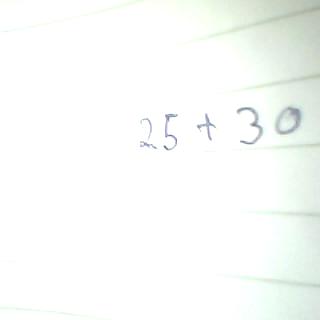 25 + 30